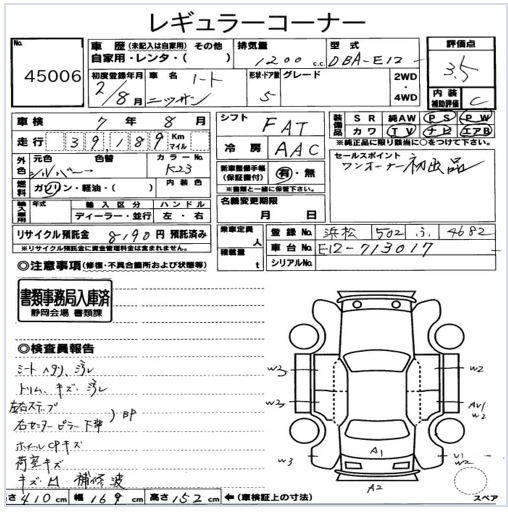 レギュラーコーナー
No.
45006
車歴 (未記入は自家用) その他
自家用・レンタ・( )
排気量
1200 c.c.
型式
DBA-E12
評価点
3.5
初度登録年月
2/8月
車名
ノート
ニッサン
形状・ドア数
5
グレード
2WD
・
4WD
内装
補助評価
C
車検 7年 8月
走行 39189 Km
マイル
シフト
FAT
冷房
AAC
装備品
SR 純AW PS PW
カワ TV ナビ エアB
※純正品に限り該当に○をつけて下さい。
外色
元色
シルバー
色替
カラーNo.
K23
燃料
ガソリン・軽油・( )
内装色
新車整備手帳
(保証書付)
有・無
※書類と一緒に保管下さい。
セールスポイント
ワンオーナー 初出品
輸入車用
年式
輸入区分
ハンドル
ディーラー・並行
左・右
名義変更期限
月 日
リサイクル預託金 8190円 預託済み
※リサイクル預託金に資金管理料金は含まれます。
乗車定員
人
積載量
t
登録No. 浜松 502 ふ 4682
車台No. E12-713017
シリアルNo.
◎注意事項 (修復・不具合箇所および状態等)
書類事務局入庫済
静岡会場 書類課
◎検査員報告
シート ヘタリ、ヨゴレ
トリム、キズ、ヨゴレ
左右ステップ
右センターピラー下部
)BP
ホイールCPキズ
荷室キズ
キズ凹 補修波
w3
w2
w2
w2
w3
AV1
W2
A1
V1
W2
A2
スペア
さ 410cm 幅 169cm 高さ 152cm ←(車検証上の寸法)